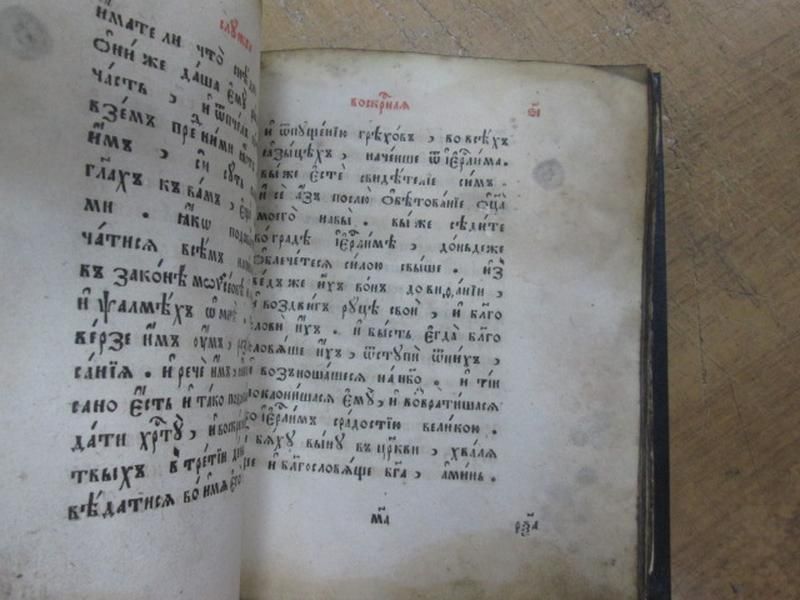 служба
имате ли что
Ѻни же даша ємꙋ
часть , и ѿ
взємъ пред ними
имъ , сїи сꙋть
глахъ къ вамъ ,
ми . ꙗкѡ
чатися всѣмъ
въ законѣ мѡѵсеовѣ
и ѱалмѣхъ ѡ мнѣ .
верзе имъ ѹмъ ,
санїꙗ . и рече имъ ,
сано єсть и тако
дати хрⷭ҇тꙋ , и
твыхъ в третїи
вѣдатися во имꙗ єго
воскрⷭ҇наꙗ
и ѿпꙋщенїю грѣховъ , во всѣхъ
ꙗзыцѣхъ , наченше ѿ іерⷭ҇лима .
вы же єсте свидѣтелїе симъ .
и се азъ послю ѻбѣтованїе ѻц҃а
моего на вы . вы же сѣдите
во граде іерⷭ҇лимѣ , доньдеже
ѻблечетеся силою свыше . из
ведъ же ихъ вонъ до виѳанїи ,
и воздвигъ рꙋце свои , и бл҃го
слови ихъ . и бысть єгда бл҃го
словꙗше ихъ , ѿстꙋпи ѿ нихъ ,
и возношашеся на нб҃о . и тїи
поклонишася ємꙋ , и возвратишася
во іерⷭ҇лимъ с радостїю великою .
и бꙗхꙋ вынꙋ въ цр҃кви , хвалꙗ
ще и бл҃гословꙗще бг҃а , аминь .
м҃а